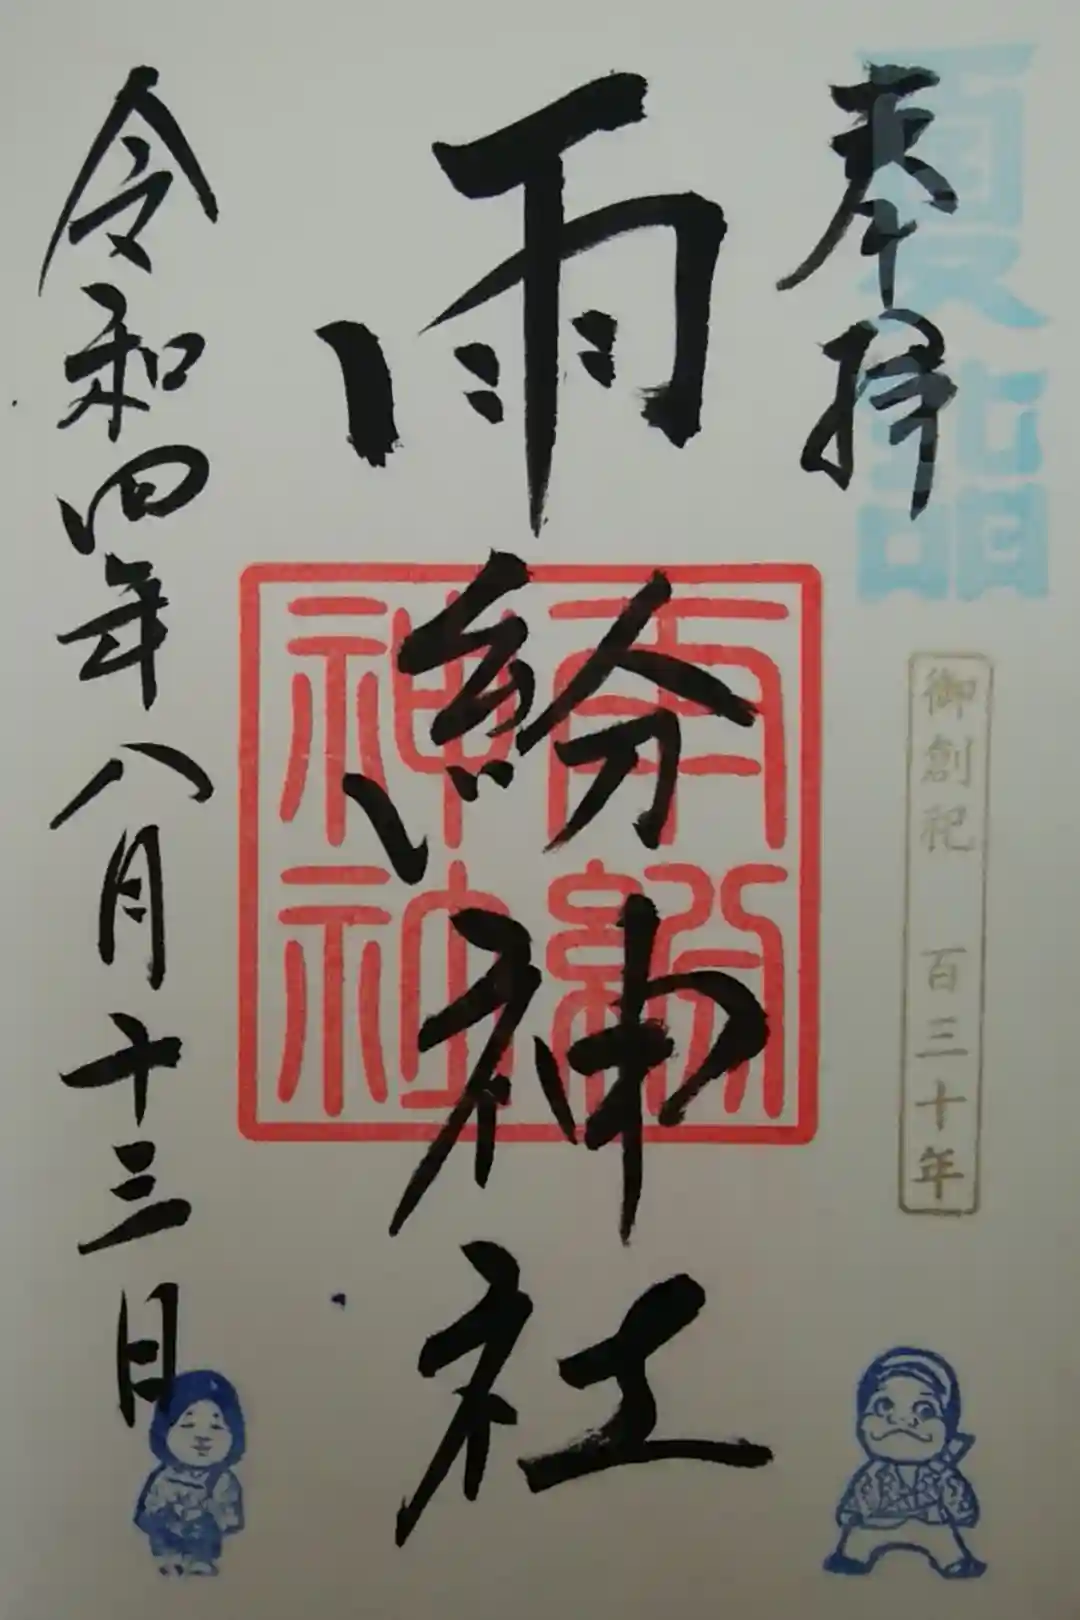 夏詣
奉拝
御創祀 百三十年
雨紛神社
雨紛
神社
令和四年八月十三日